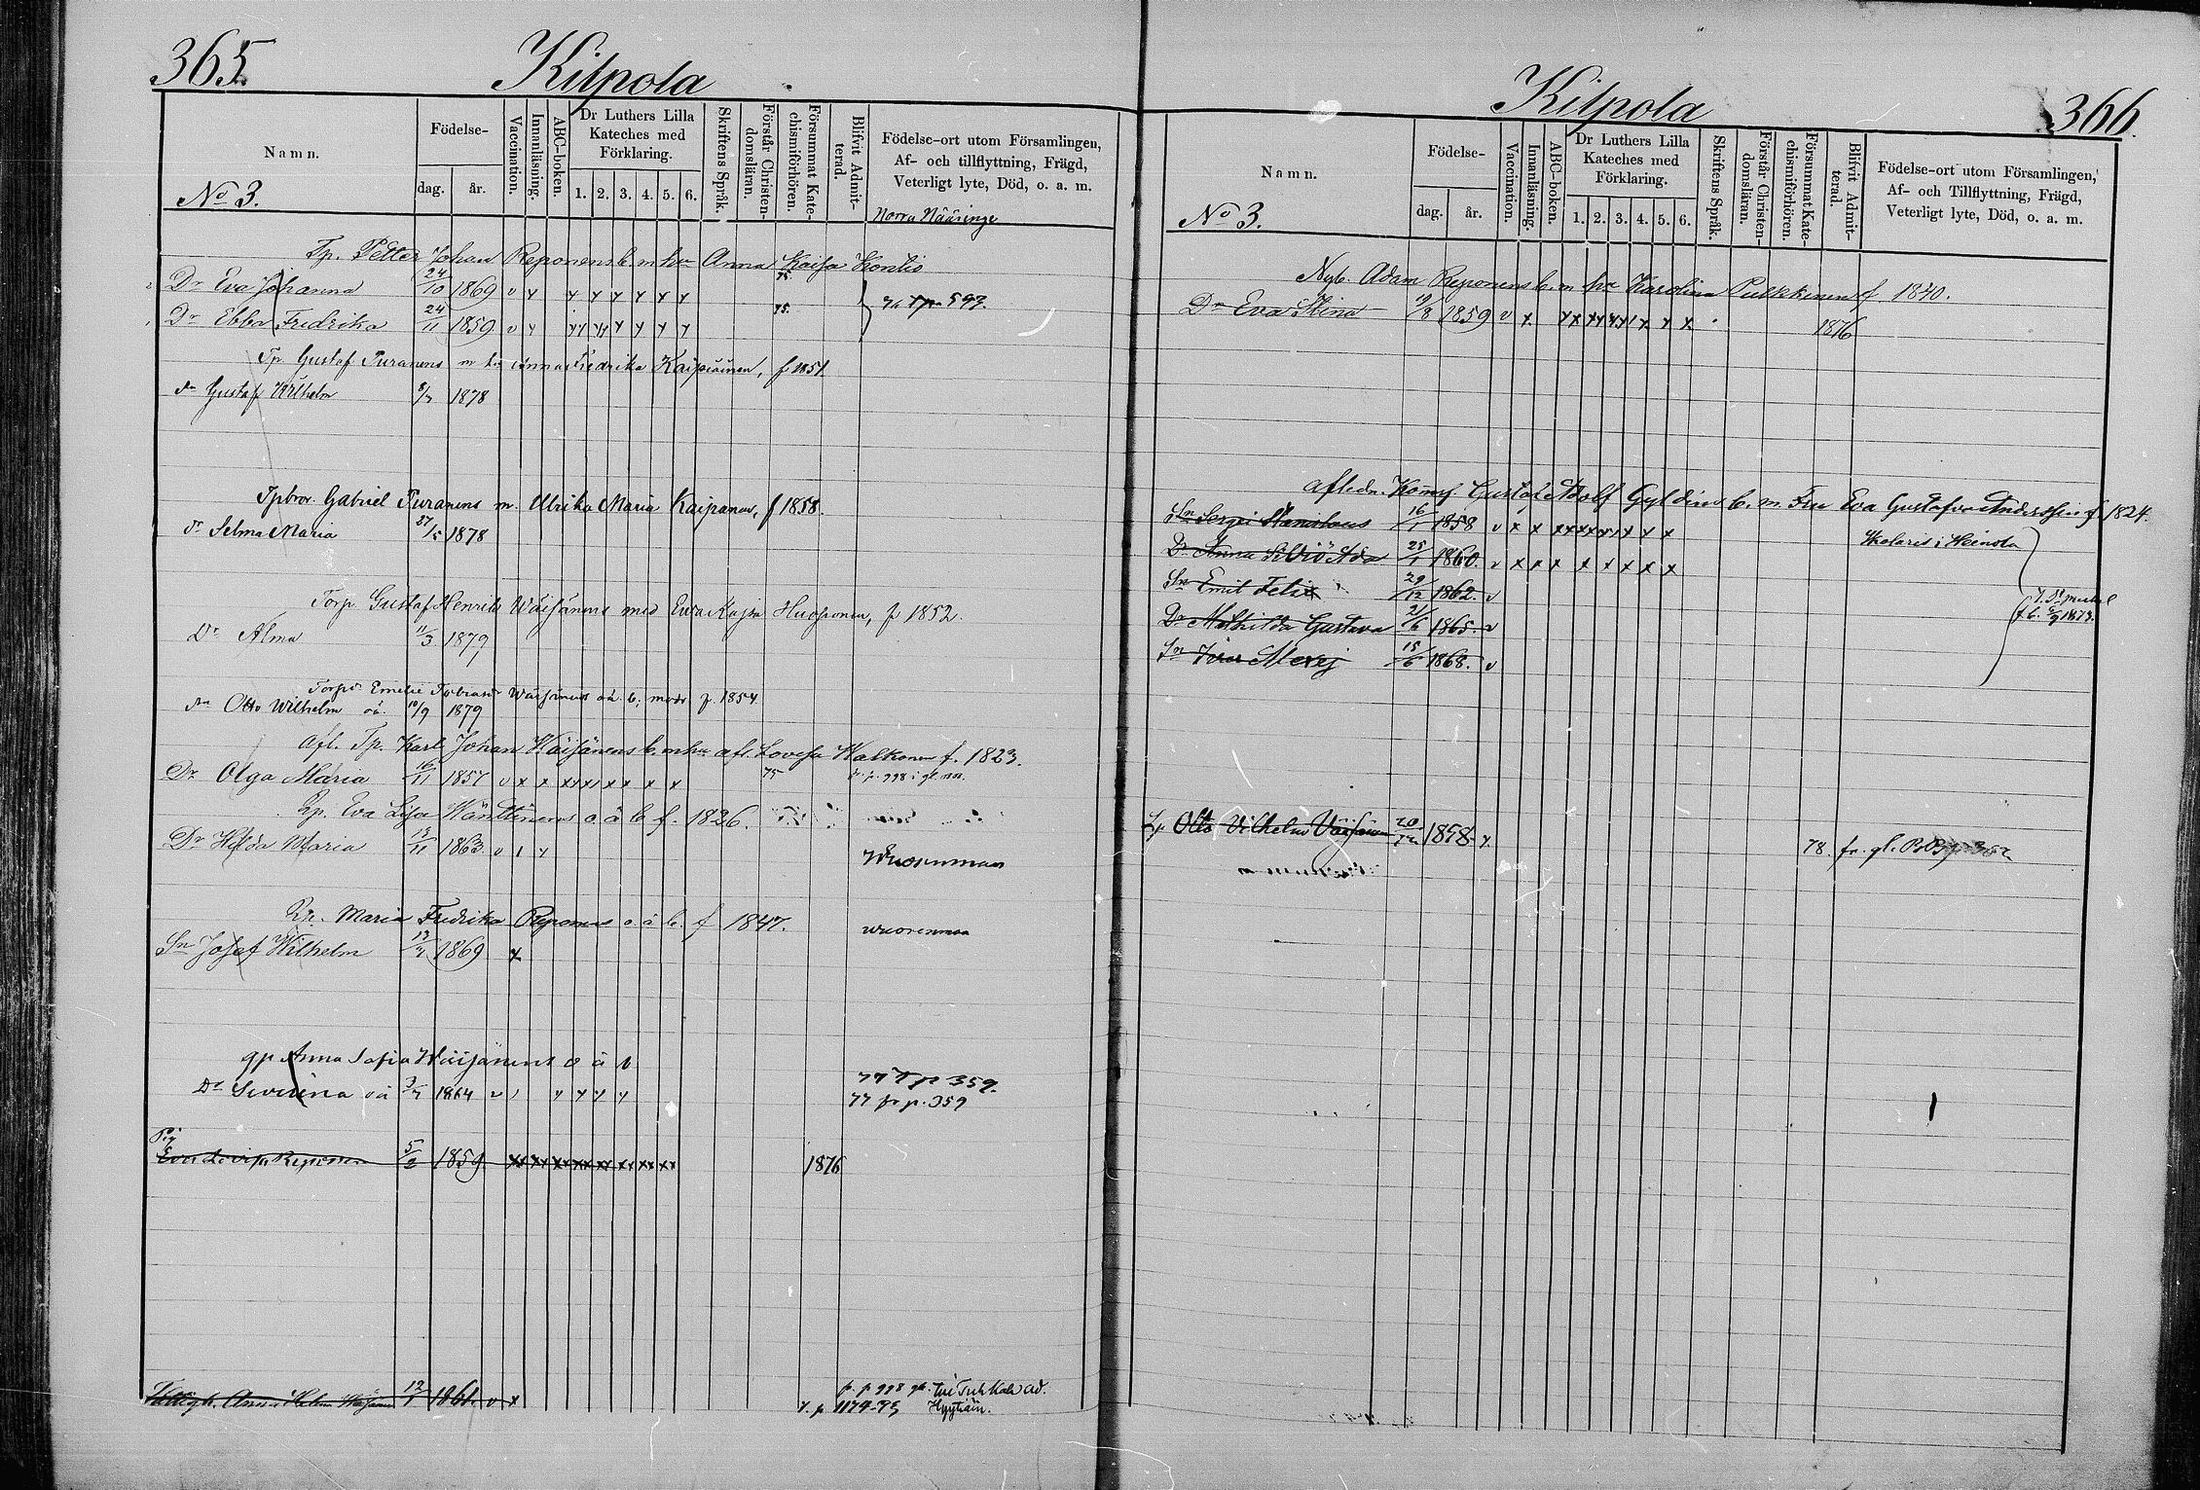 365.
Kilpola
Namn.
No 3.
Födelse-
dag.
år.
Vaccination.
Innanläsning.
ABC-boken.
Dr Luthers Lilla
Kateches med
Förklaring.
1. 2. 3. 4. 5. 6.
Skriftens Språk.
Förstår Christen-
domsläran.
Försummat Kate-
chismiförhören.
Blifvit Admit-
terad.
Födelse-ort utom Församlingen,
Af- och tillflyttning, Frägd,
Veterligt lyte, Död, o. a. m.
Norra Nääringe
Tp. Petter Johan Reponens b. m hu Anna Kaisa Kontio
Dr Eva Johanna 24/10 1869 v 75.
Dr Ebba Fredrika 24/11 1859 v 75. 76 T p 593.
Tp. Gustaf Puranens m hu Anna Fredrika Kaipiainen, f 1851.
Gustaf Wilhelm 8/7 1878
Tpbror. Gabriel Puranens m. Ulrika Maria Kaipanen, f 1858.
dr Selma Maria 1878
Torp Gustaf Henrik Wäisänens med Eva Kajsa Huoponen, f 1852.
Dr Alma 11/3 1879
Emelie Wäisänens oä. b. f. 1854
Otto Wilhelm oä. 10/9 1879
Afl. Tp. Karl Johan Wäisänens b. m hu afl. Lovisa Walkonen f. 1823.
Dr Olga Maria 16/11 1857 v x x 75 fr. p. 998 i gl.
Eva Lisa Wänttinens o. ä b f. 1826.
Dr Hilda Maria 13/11 1863 v
Wuorenmaa
Maria Fredrika Reponens o. ä b. f 1847.
Wuorenmaa
Sn Josef Wilhelm 13/7 1869 x
Anna Sofia Wäisänens o ä b
77 T p 359.
Dr Severina oä 3/7 1864 v 77 fr p. 359
Pig
Eva Lovisa Reponen 5/2 1859 1876
Anna Helena Wäisänen 12/1 1861. v x
p. 998 gl.
T. p 1174-75 Hyytiäin.
Kilpola
366.
Namn.
No 3.
Födelse-
dag.
år.
Vaccination.
Innanläsning.
ABC-boken.
Dr Luthers Lilla
Kateches med
Förklaring.
1. 2. 3. 4. 5. 6.
Skriftens Språk.
Förstår Christen-
domsläran.
Försummat Kate-
chismiförhören.
Blifvit Admit-
terad.
Födelse-ort utom Församlingen,
Af- och Tillflyttning, Frägd,
Veterligt lyte, Död, o. a. m.
Nyb. Adam Reponens b. m hu Karolina Pulkkinen f 1840.
Dr Eva Stina 19/8 1859 v x 1876
Afledn. Komf. Gustaf Adolf Gyldéns b. m Fru Eva Gustafva Anderssen f. 1824.
Sn Sergei Stanislaus 16/1 1858 v x x
Skolaret i Heinola
Dr Anna Silvio Ada 25/1 1860. v x x x
Sn Emil Felix 29/12 1862. v
T. St. Michel
f. b. 5/9 1873.
Dr Mathilda Gustava 21/6 1865. v
Sn Iwar Alexej 15/6 1868. v
Otto Vilhelm Väisänen 1858 78. fr. gl.